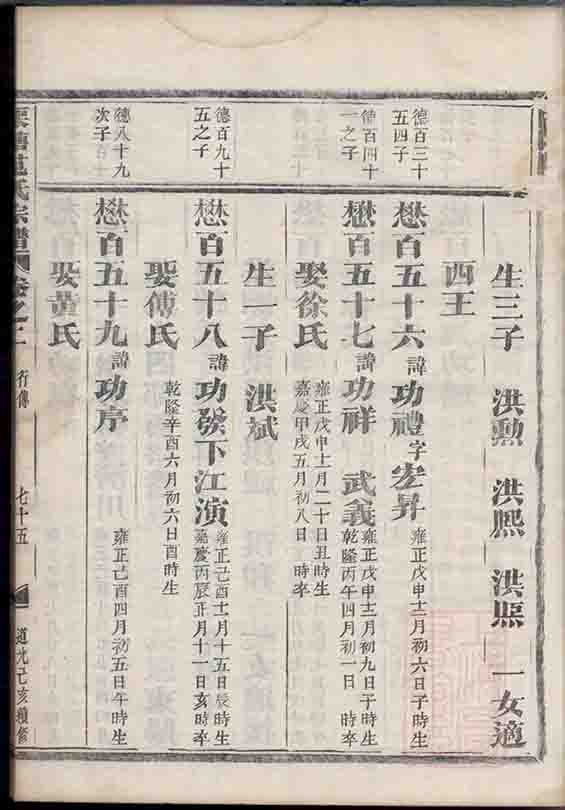 生三子 洪勲 洪熈 洪煕 一女適
西王
德百三十五四子
懋百五十六諱功禮字宏昇 雍正戊申十二月初六日子時生
德百四十一之子
懋百五十七諱功祥 武義 雍正戊申十二月初九日子時生 乾隆丙午四月初一日 時卒
娶徐氏 雍正戊申十一月二十日丑時生 嘉慶甲戌五月初八日 時卒
生一子 洪斌
德百九十五之子
懋百五十八諱功發下江演 雍正己酉十一月十五日辰時生 嘉慶丙辰正月十一日亥時卒
娶傅氏 乾隆辛酉六月初六日酉時生
德八十九次子
懋百五十九諱功序 雍正己酉四月初五日午時生
娶黄氏
氏宗譜 卷之二 行傳 七十五 道光己亥續修